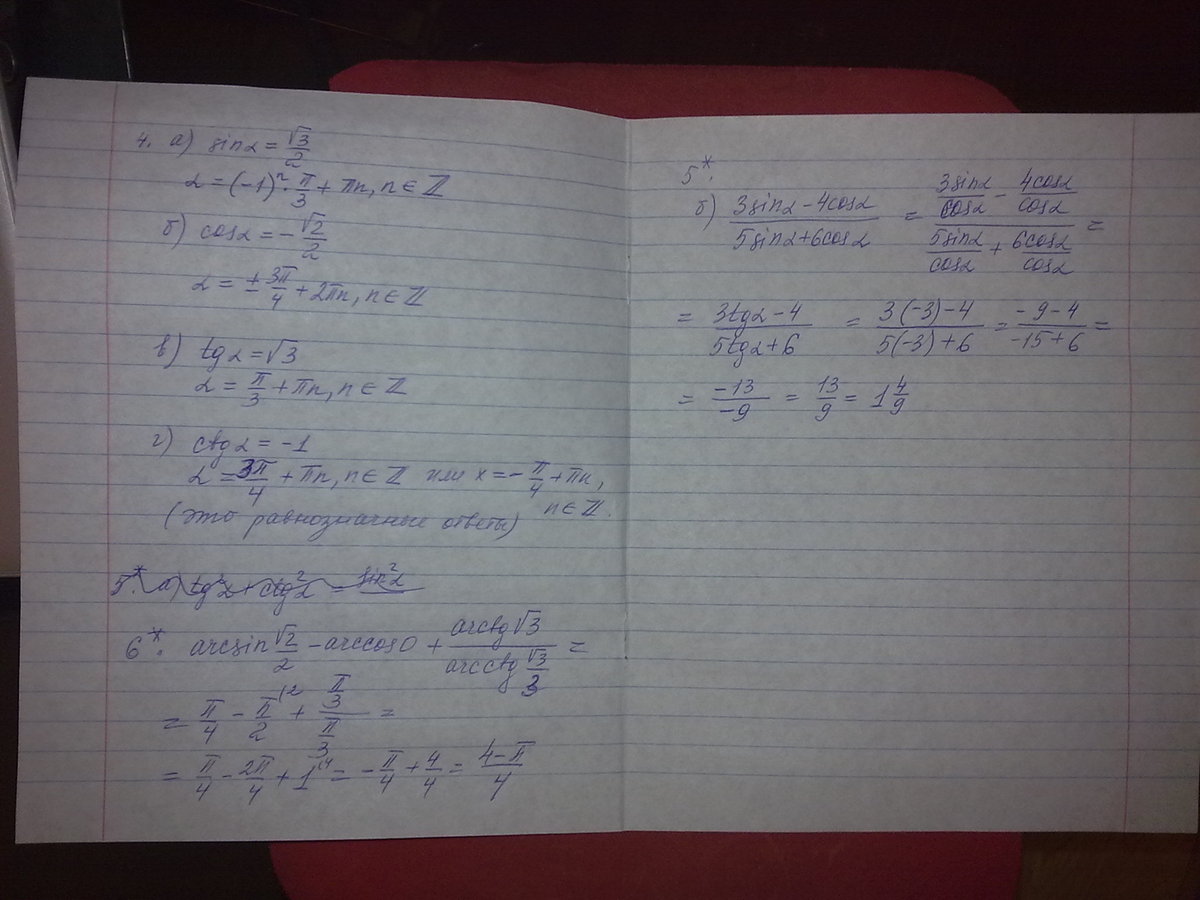 4. а) sinα = √3/2
α = (-1)ⁿ · π/3 + πn, n ∈ ℤ
б) cosα = -√2/2
α = ± 3π/4 + 2πn, n ∈ ℤ
в) tgα = √3
α = π/3 + πn, n ∈ ℤ
г) ctgα = -1
α = 3π/4 + πn, n ∈ ℤ или x = -π/4 + πn,
n ∈ ℤ.
(это равнозначные ответы)
5*. а) tg²α + ctg²α = sin²α
6*. arcsin √2/2 - arccos 0 + (arctg √3)/(arcctg √3/3) =
= π/4 - π/2 \² + (π/3)/(π/3) =
= π/4 - 2π/4 + 1 \⁴ = -π/4 + 4/4 = (4-π)/4
5*.
б) (3sinα - 4cosα)/(5sinα + 6cosα) = (3sinα/cosα - 4cosα/cosα)/(5sinα/cosα + 6cosα/cosα) =
= (3tgα - 4)/(5tgα + 6) = (3(-3) - 4)/(5(-3) + 6) = (-9 - 4)/(-15 + 6) =
= -13/-9 = 13/9 = 1 4/9